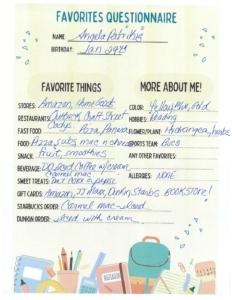 FAVORITES QUESTIONNAIRE
NAME: Angela
BIRTHDAY: Jan 29th
FAVORITE THINGS
MORE ABOUT ME!
STORES: Amazon, HomeGoods
COLOR: Yellow, Blue, Gold
RESTAURANTS: Outback, Craft Street
HOBBIES: Reading
FAST FOOD Pizza, Panera
FLOWER/PLANT: Hydrangea, herbs
FOOD Pizza, subs, mac n cheese
SPORTS TEAM: Bucs
SNACK: Fruit, smoothies
ANY OTHER FAVORITES:
BEVERAGE: DD Iced Coffee w/ cream
caramel mac
ALLERGIES: NONE
SWEET TREATS:
GIFT CARDS: Amazon, TJ Maxx, Dunkin, Starbs BOOKSTORE!
STARBUCKS ORDER: Caramel mac - Iced
DUNKIN ORDER: Iced with cream